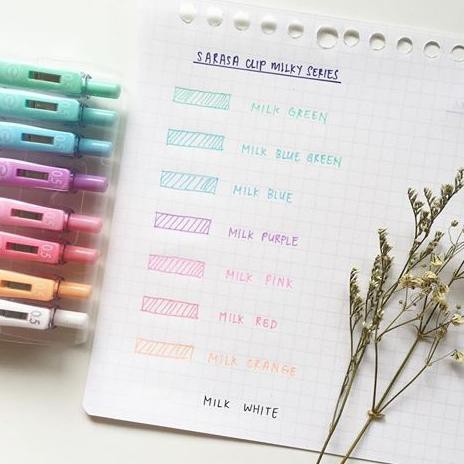 SARASA CLIP MILKY SERIES
MILK GREEN
MILK BLUE GREEN
MILK BLUE
MILK PURPLE
MILK PINK
MILK RED
MILK ORANGE
MILK WHITE
0.5
0.5
0.5
0.5